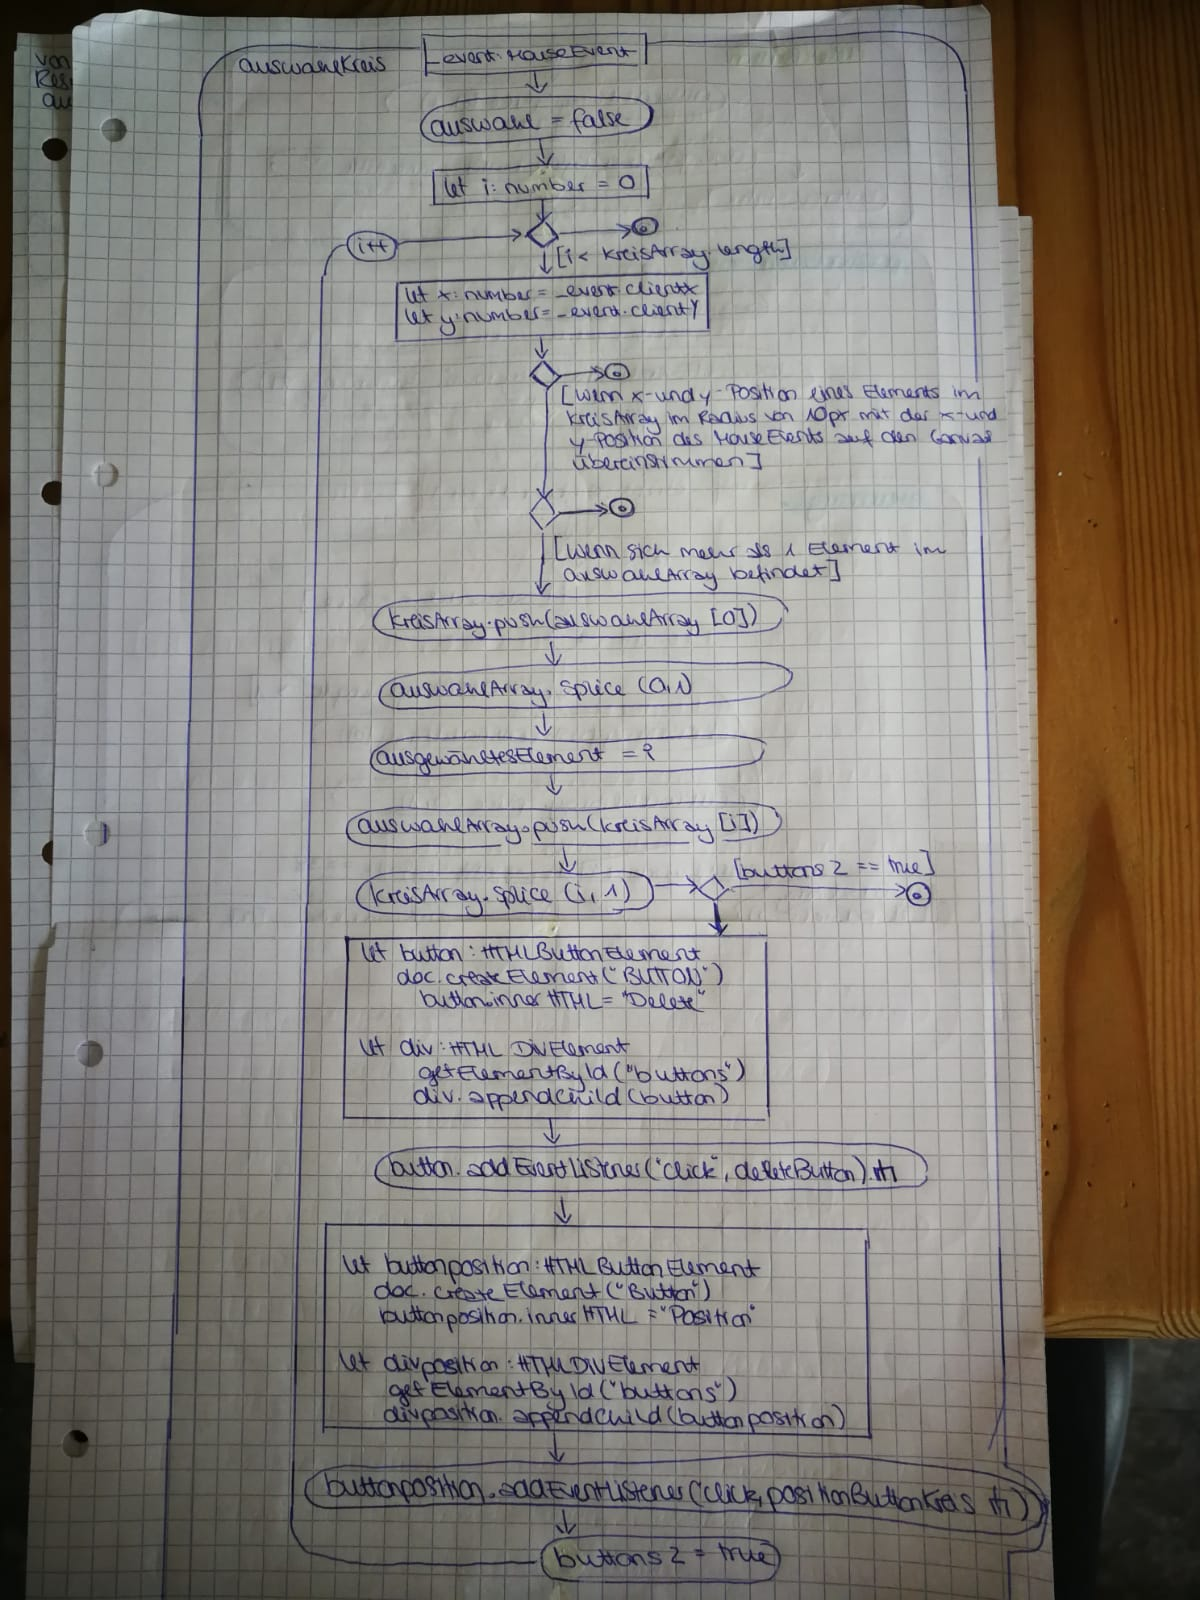 von
Res
au
auswahlKreis
_event: MouseEvent
auswahl = false
let i: number = 0
i++
[i < KreisArray.length]
let x: number = _event.clientX
let y: number = _event.clientY
[wenn x-und y-Position eines Elements im
KreisArray im Radius von 10px mit der x-und
y-Position des MouseEvents auf den Canvas
übereinstimmen]
[wenn sich mehr als 1 Element im
auswahlArray befindet]
kreisArray.push(auswahlArray [0])
auswahlArray.splice (0,1)
ausgewähltesElement = ?
auswahlArray.push(kreisArray [i])
kreisArray.splice (i, 1)
[buttons2 == true]
let button: HTMLButtonElement
doc.createElement("BUTTON")
button.innerHTML = "Delete"
let div: HTML DivElement
getElementById("buttons")
div.appendChild(button)
button.addEventListener("click", deleteButton)
let buttonposition: HTMLButtonElement
doc.createElement("Button")
buttonposition.innerHTML = "Position"
let divposition: HTMLDivElement
getElementById("buttons")
divposition.appendChild(buttonposition)
buttonposition.addEventListener("click, positionButtonKreis
buttons2 = true